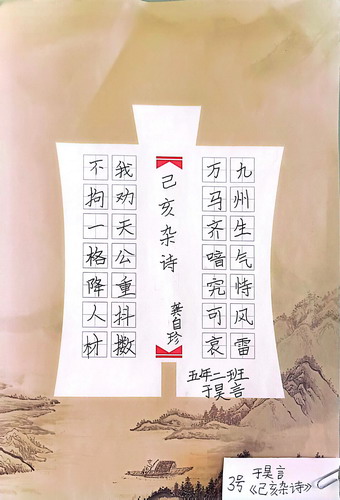 九州生气恃风雷
万马齐喑究可哀
己亥杂诗
龚自珍
我劝天公重抖擞
不拘一格降人材
五年二班
于昊言
3号 于昊言
《己亥杂诗》